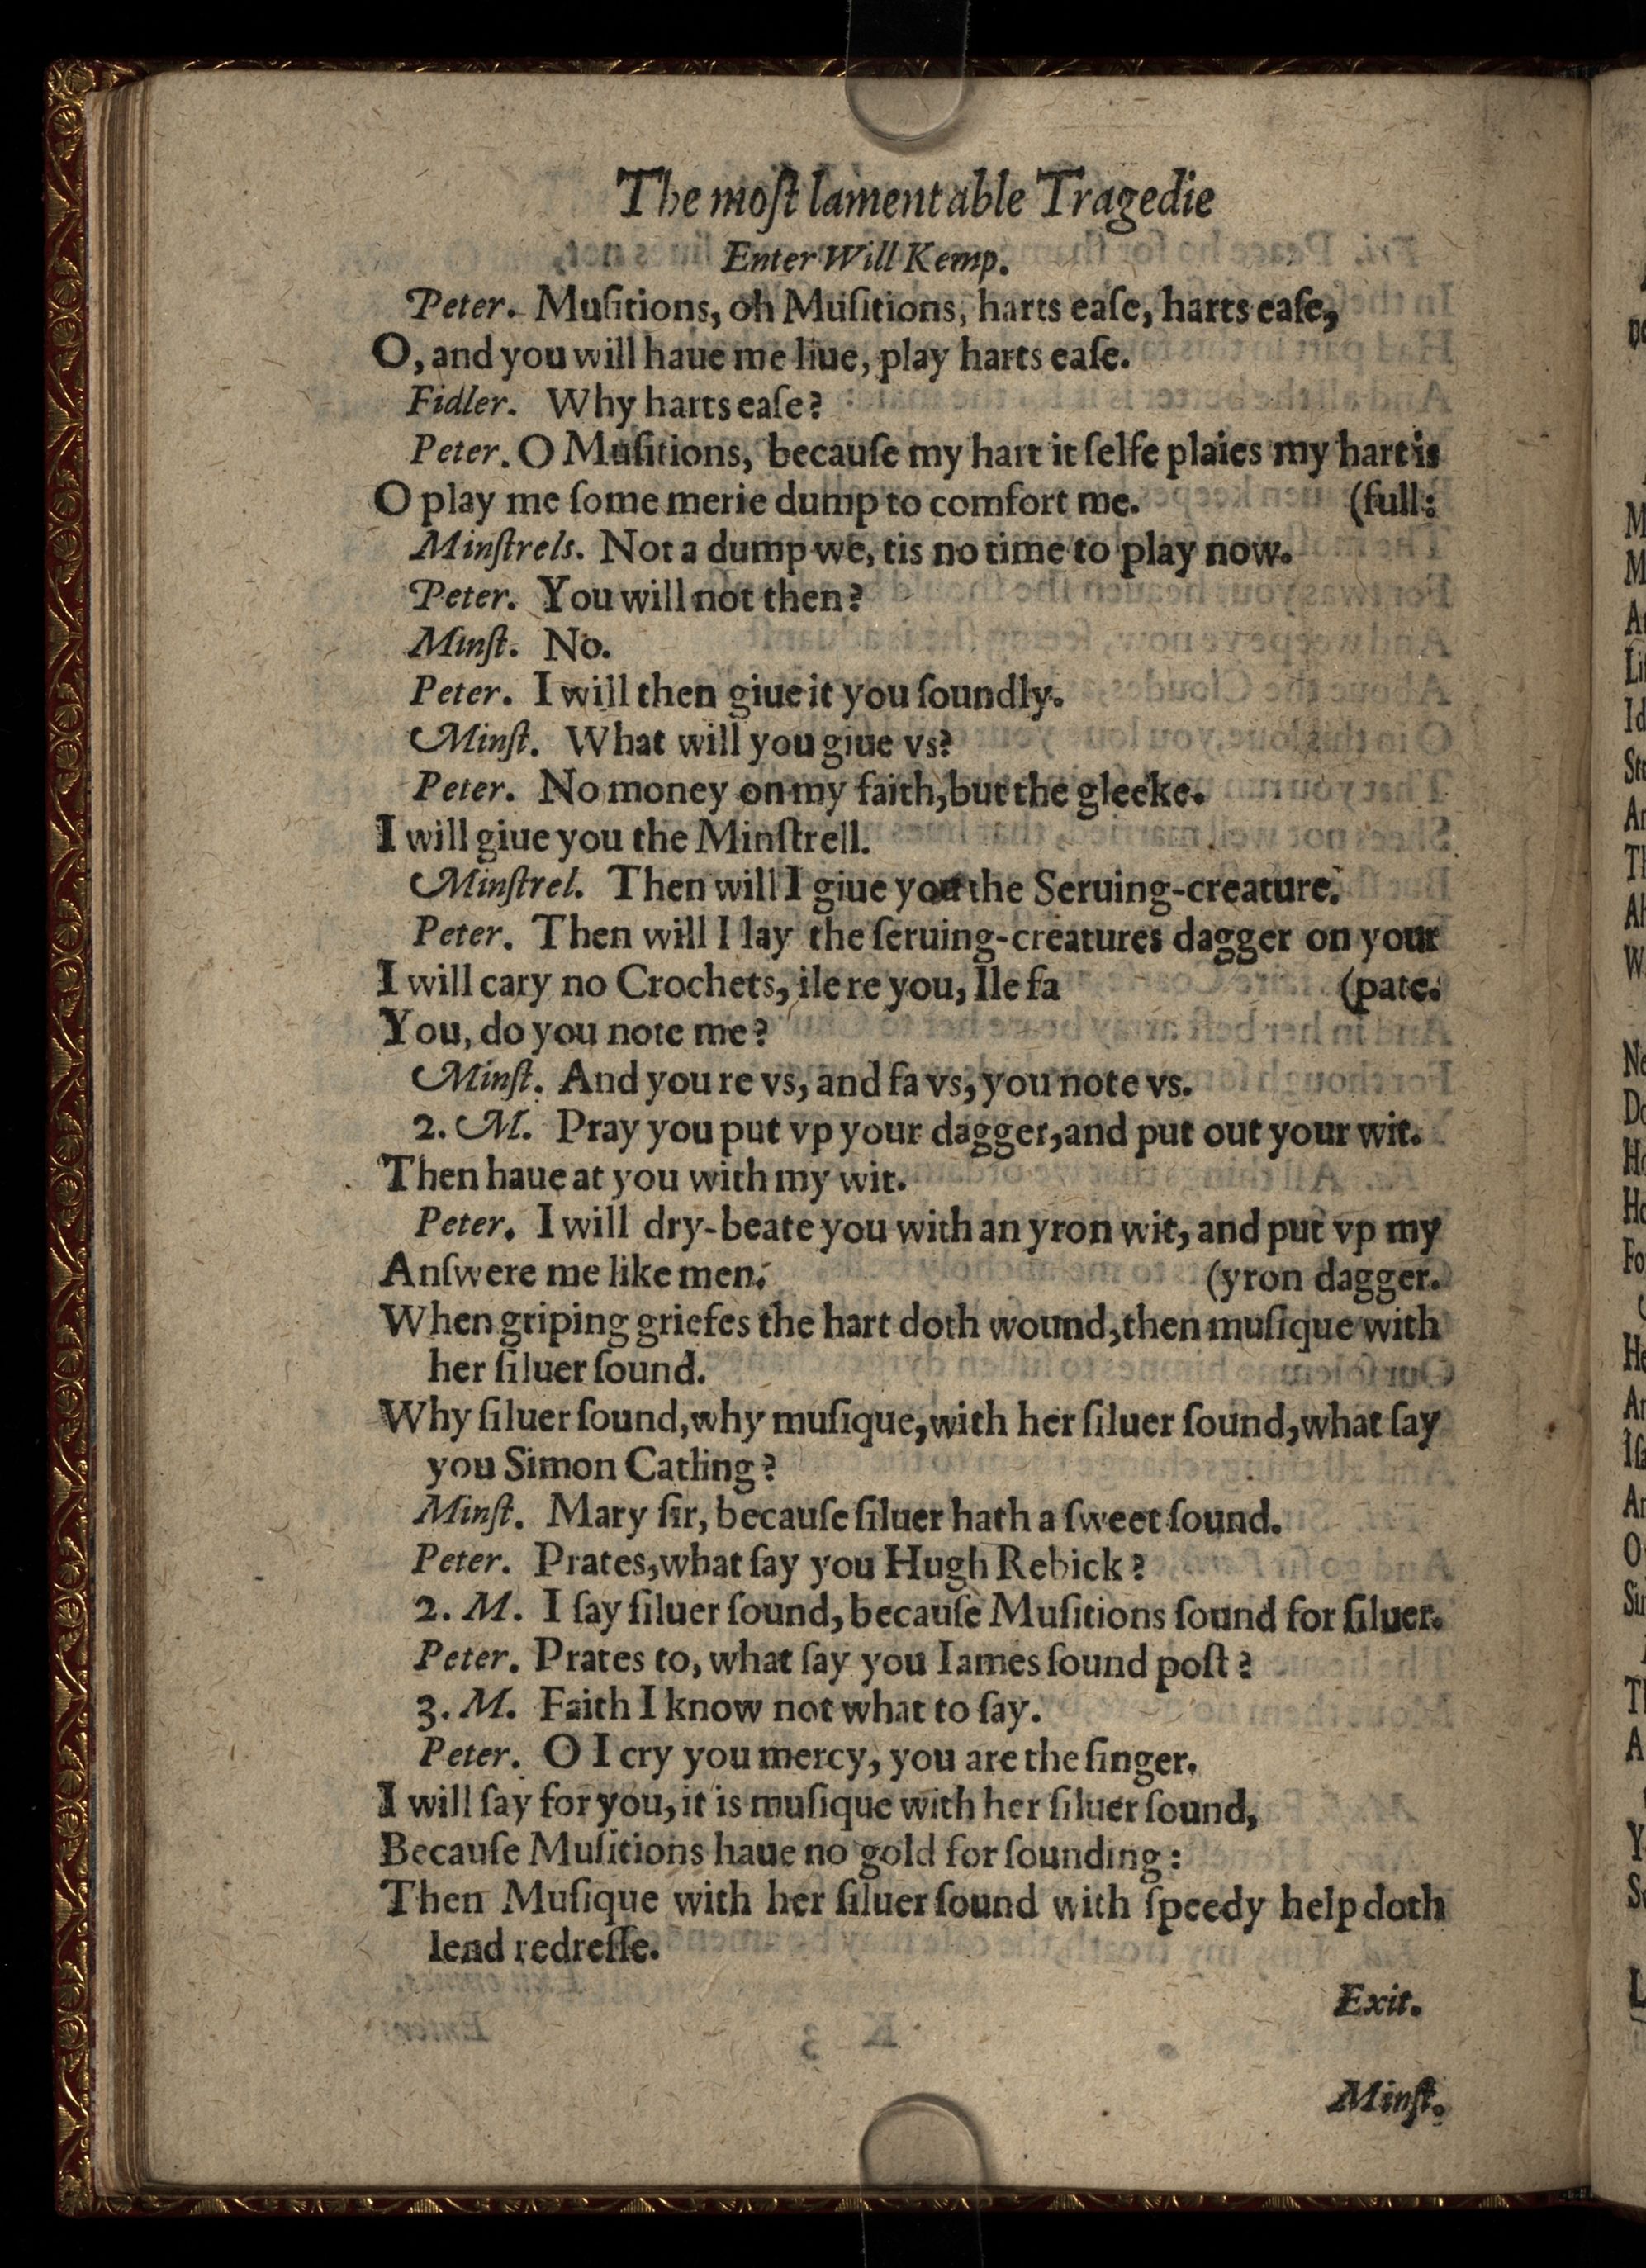 The moſt lamentable Tragedie
Enter Will Kemp.
Peter. Muſitions, oh Muſitions, harts eaſe, harts eaſe,
O, and you will haue me liue, play harts eaſe.
Fidler. Why harts eaſe?
Peter. O Muſitions, becauſe my hart it ſelfe plaies my hart is
O play me ſome merie dump to comfort me. (full:
Minſtrels. Not a dump we, tis no time to play now.
Peter. You will not then?
Minſt. No.
Peter. I will then giue it you ſoundly.
Minſt. What will you giue vs?
Peter. No money on my faith, but the gleeke.
I will giue you the Minſtrell.
Minſtrel. Then will I giue you the Seruing-creature.
Peter. Then will I lay the ſeruing-creatures dagger on your
I will cary no Crochets, ile re you, Ile fa (pate.
You, do you note me?
Minſt. And you re vs, and fa vs, you note vs.
2. M. Pray you put vp your dagger, and put out your wit.
Then haue at you with my wit.
Peter. I will dry-beate you with an yron wit, and put vp my
Anſwere me like men. (yron dagger.
When griping griefes the hart doth wound, then muſique with
her ſiluer ſound.
Why ſiluer ſound, why muſique, with her ſiluer ſound, what ſay
you Simon Catling?
Minſt. Mary ſir, becauſe ſiluer hath a ſweet ſound.
Peter. Prates, what ſay you Hugh Rebick?
2. M. I ſay ſiluer ſound, becauſe Muſitions ſound for ſiluer.
Peter. Prates to, what ſay you Iames ſound poſt?
3. M. Faith I know not what to ſay.
Peter. O I cry you mercy, you are the ſinger.
I will ſay for you, it is muſique with her ſiluer ſound,
Becauſe Muſitions haue no gold for ſounding:
Then Muſique with her ſiluer ſound with ſpeedy help doth
lend redreſſe.
Exit.
Minſt.